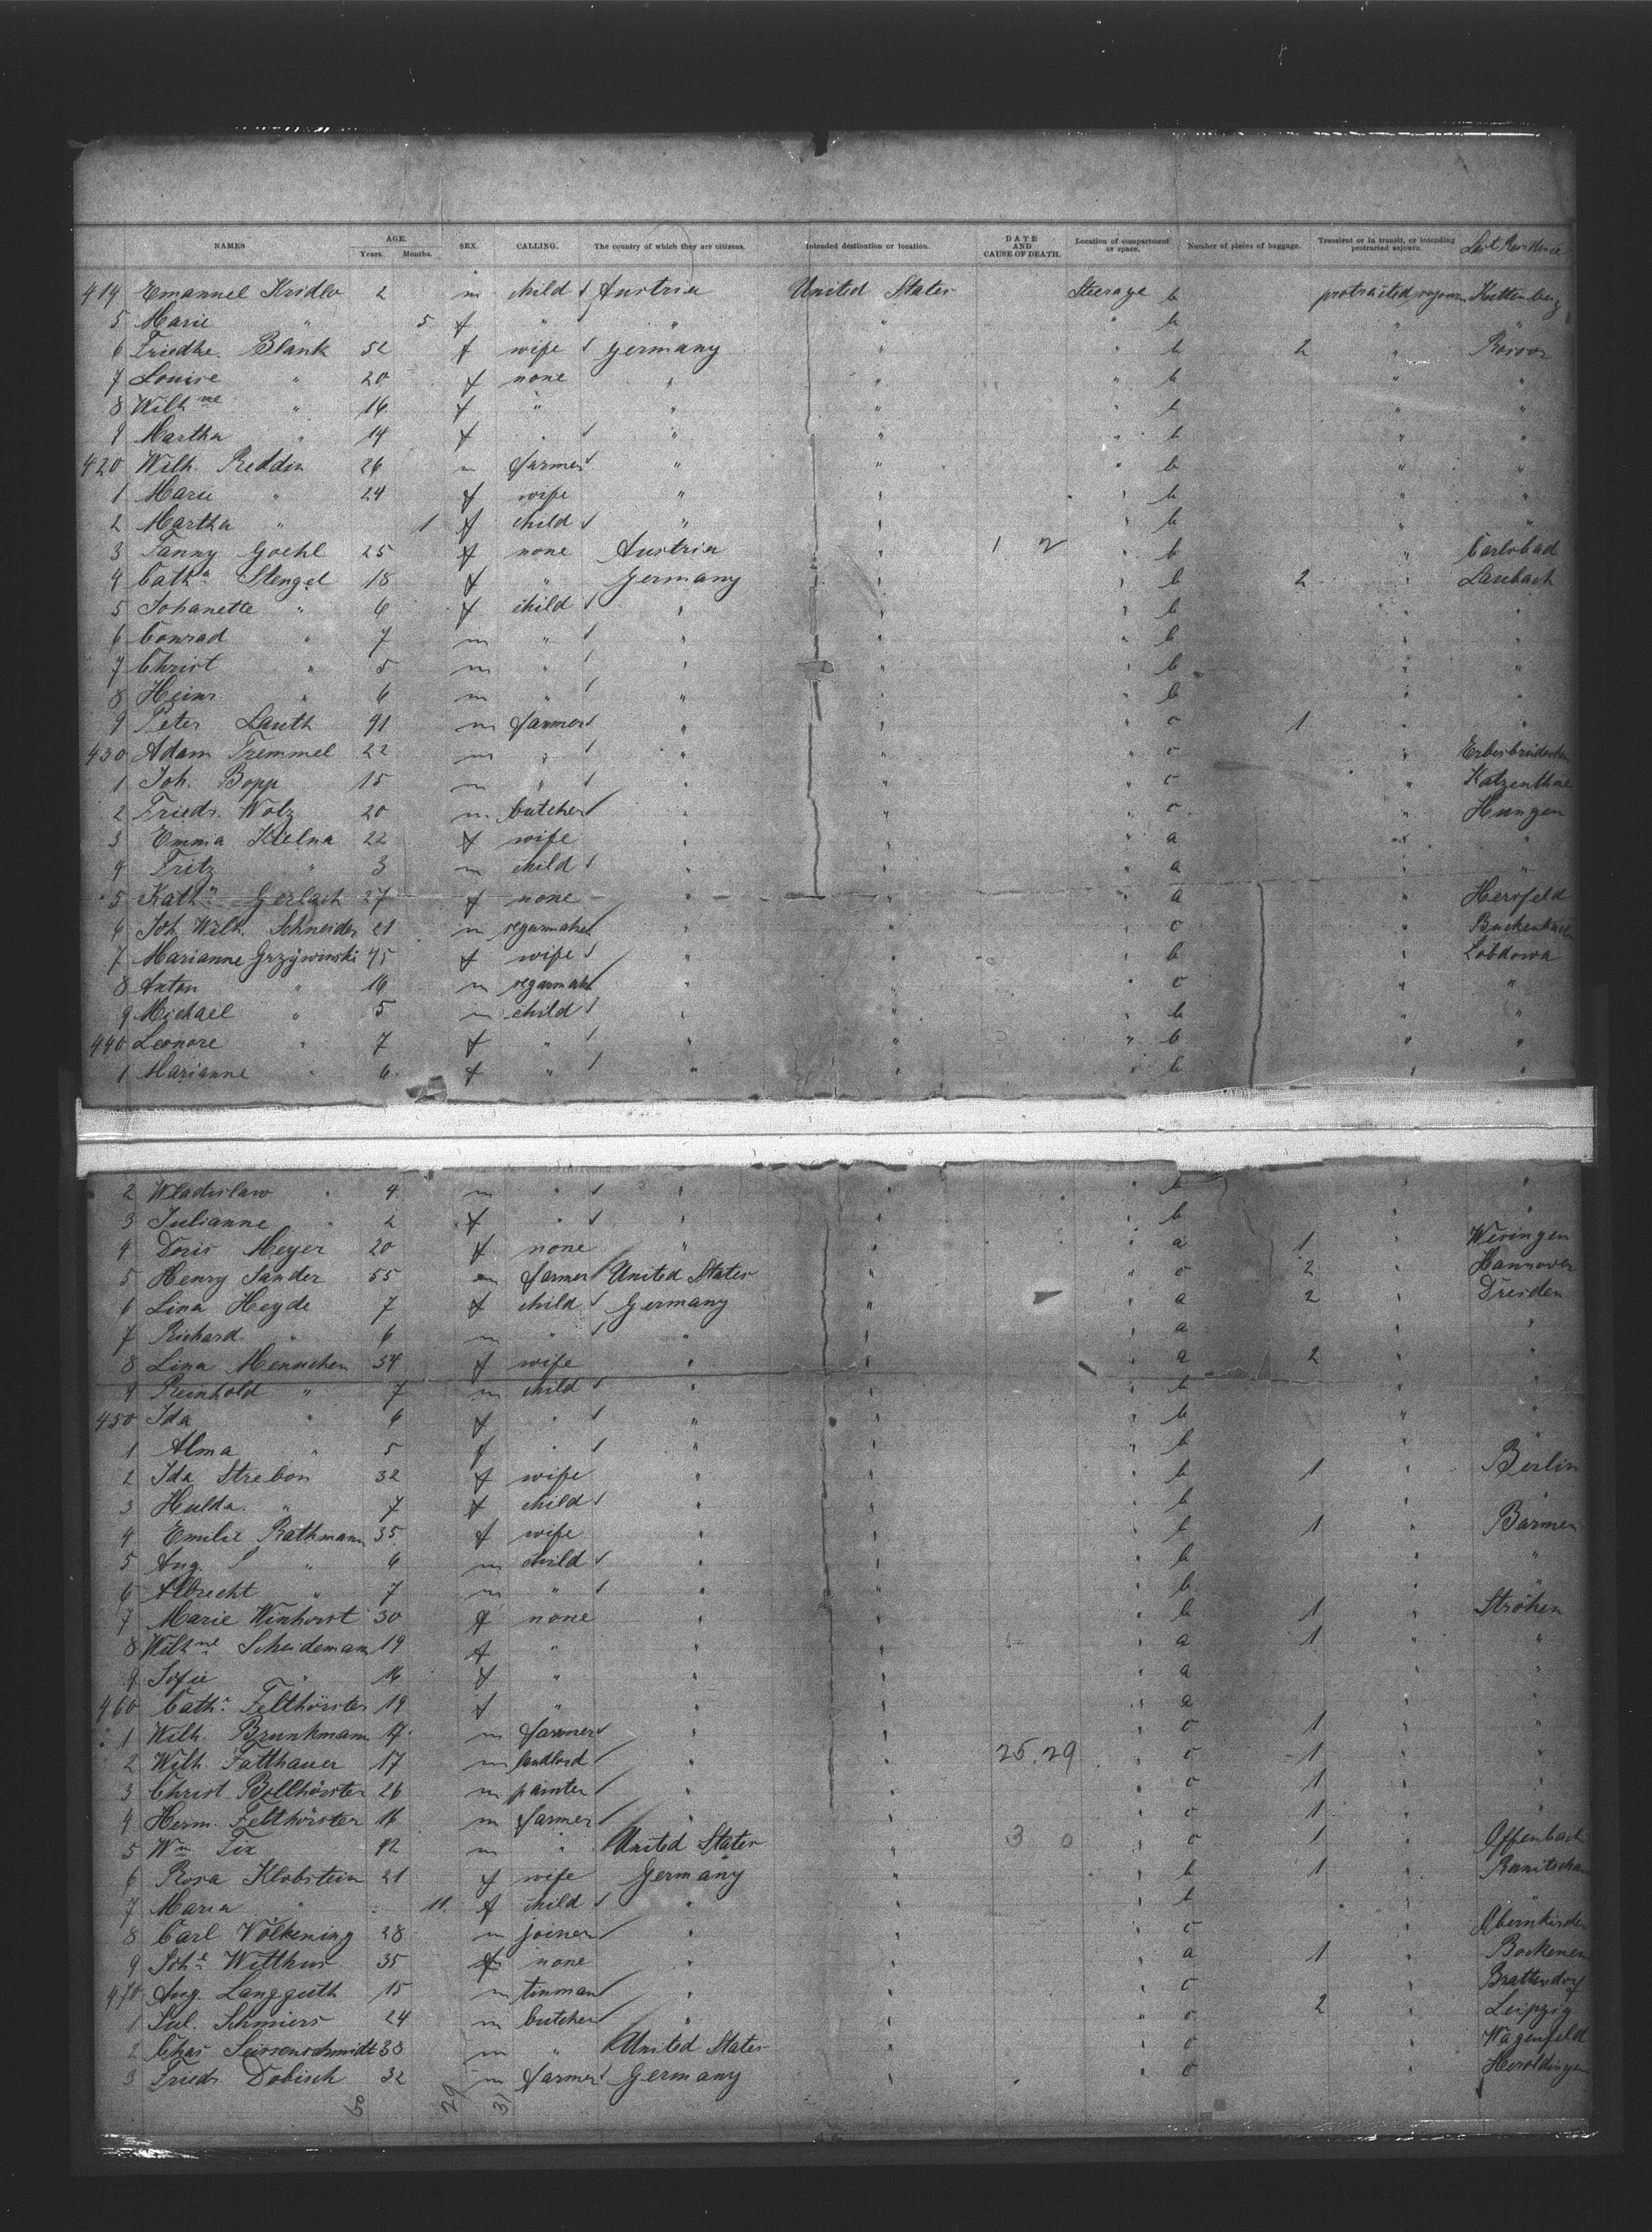 NAMES AGE. Years. Months. SEX. CALLING. The country of which they are citizens. Intended destination or location. DATE AND CAUSE OF DEATH. Location of compartment or space. Number of pieces of baggage. Transient or in transit, or intending protracted sojourn. Last Residence
414 Emanuel 2 m child Austria United States Steerage b protracted sojourn Kuttenberg
5 Marie " 5 f " " " " b " "
6 Friedke. Blank 52 f wife Germany " " b 2 "
7 Louise " 20 f none " " " b " "
8 Wilhne " 16 f " " " b " "
9 Martha " 14 f " " " " b " "
420 Wilh. Reddin 26 m farmer " " " b " "
1 Marie " 24 f wife " " " b " "
2 Martha " 1 f child " " " b " "
3 Fanny Goehl 25 f none Austria " 1 2 " b " Carlsbad
4 Catha Stengel 18 f " Germany " " b 2 " Laubach
5 Johanette " 6 f child " " " b " "
6 Conrad " 7 m " " " " b " "
7 Christ " 5 m " " " " b " "
8 Heinr. " 6 m " " " " b " "
9 Peter Lauth 41 m farmer " " " c 1 " "
430 Adam Tremmel 22 m " " " " c "
1 Joh. Bopp 15 m " " " " c " Katzenthal
2 Friedr. Wolz 20 m butcher " " " c " Hungen
3 Emma Kielna 22 f wife " " " a " "
4 Fritz " 3 m child " " " a " "
5 Katha Gerlach 27 f none " " " a " Hersfeld
6 Joh. Wilh. Schneider 21 m " " " c "
7 Marianne Grzywinski 45 f wife " " " b " Lobdowa
8 Anton " 16 m " " " c " "
9 Michael " 5 m child " " " b " "
440 Leonore " 7 f " " " " b " "
1 Marianne " 6 f " " " " b " "
2 Wladislaw " 4 m " " " " b " "
3 Julianne " 2 f " " " " b " "
4 Doris Meyer 20 f none " " " a 1 "
5 Henry Sander 55 m farmer United States " " c 2 " Hannover
6 Lina Heyde 7 f child Germany " " a 2 " Dresden
7 Richard " 6 m " " " " a " "
8 Lina 34 f wife " " " a 2 " "
9 Reinhold " 7 m child " " " b " "
450 Ida " 6 f " " " " b " "
1 Alma " 5 f " " " " b " "
2 Ida Strebon 32 f wife " " " b 1 " Berlin
3 Hulda " 7 f child " " " b "
4 Emilie Rathmann 35 f wife " " " b 1 " Barmen
5 Aug. " 6 m child " " " b " "
6 Albrecht " 7 m " " " " b " "
7 Marie Winhorst 30 f none " " " b 1 " Ströhen
8 Wilhne Scheidemann 19 f " " " " a 1 " "
9 Sofie " 16 f " " " " a " "
460 Catha Felthörster 19 f " " " " a " "
1 Wilh. Brunkmann 17 m farmer " " " c 1 " "
2 Wilh. Fatthauer 17 m landlord " " 25.29 " c 1 " "
3 Christ. 26 m painter " " " c 1 " "
4 Herm. Felthörster 16 m farmer " " " c 1 " "
5 Wm Tix 42 m " United States " 3 0 " c 1 " Offenbach
6 Rosa Klobstein 21 f wife Germany " " b 1 "
7 Maria " 11 f child " " " b "
8 Carl Völkening 28 m joiner " " " c " Obernkirchen
9 Johe Witthus 35 f none " " " a 1 " Bockenem
470 Aug. Langguth 15 m tinman " " " c " Brattendorf
1 Jul. Schmiers 24 m butcher " " " c 2 " Leipzig
2 Chas 38 m " United States " " c " Wagenfeld
3 Friedr. Dobisch 32 m farmer Germany " " c " Heroldingen
29 31